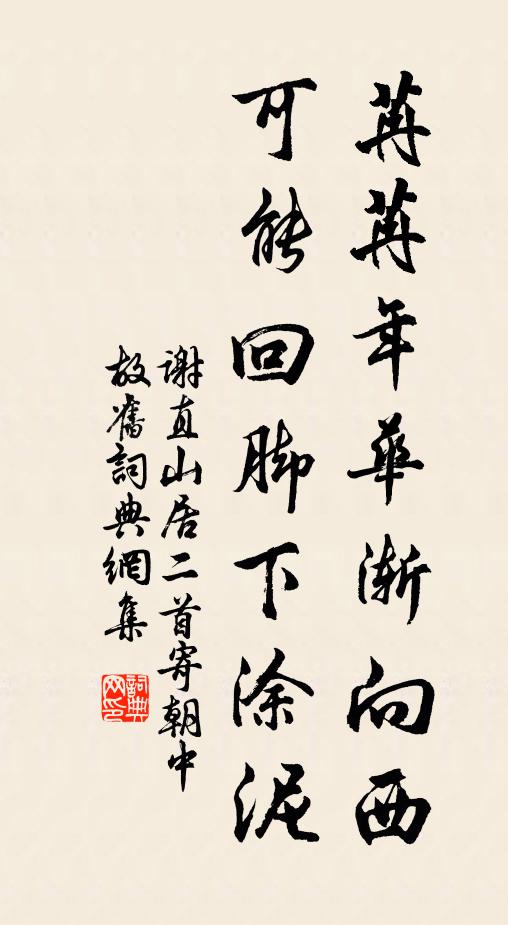 苒苒年華漸向西
可能回脚下涂泥
谢直山居二首寄朝中
故舊詞典網集
詞典
网印